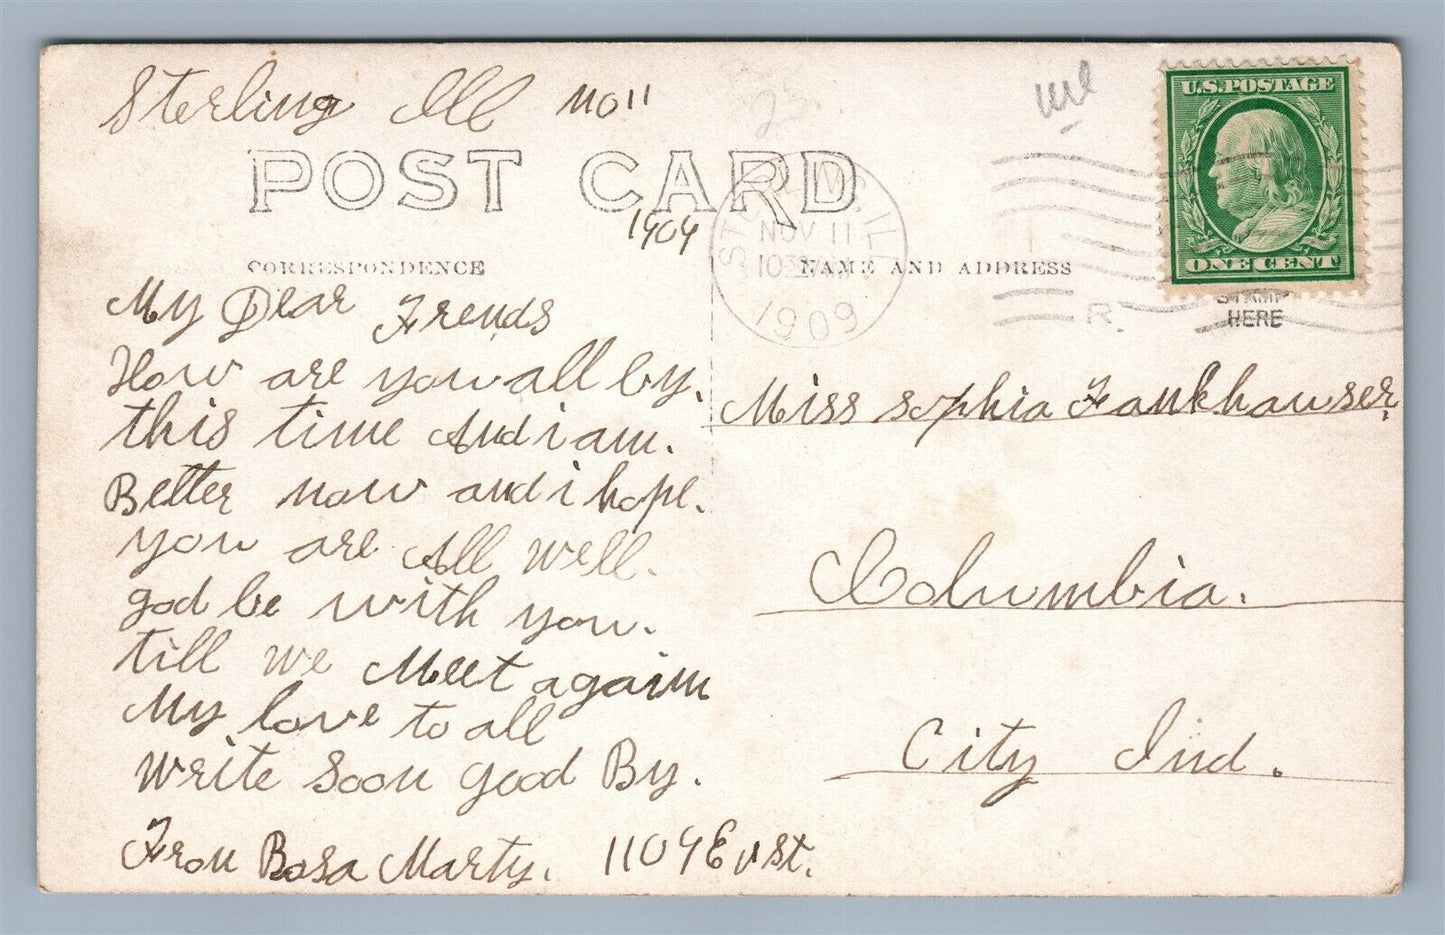 Sterling Ill no 11
POST CARD
1909
CORRESPONDENCE
NAME AND ADDRESS
STERLING, ILL.
NOV 11
10
1909
R.
U.S. POSTAGE
ONE CENT
STAMP
HERE
My Dear Frends
How are you all by.
this time And i am.
Better now and i hope.
you are All well.
god be with you.
till we Meet again
My love to all
Write Soon good By.
From Rosa Marty. 1104 E st.
Miss Sophia Fankhauser,
Columbia.
City Ind.